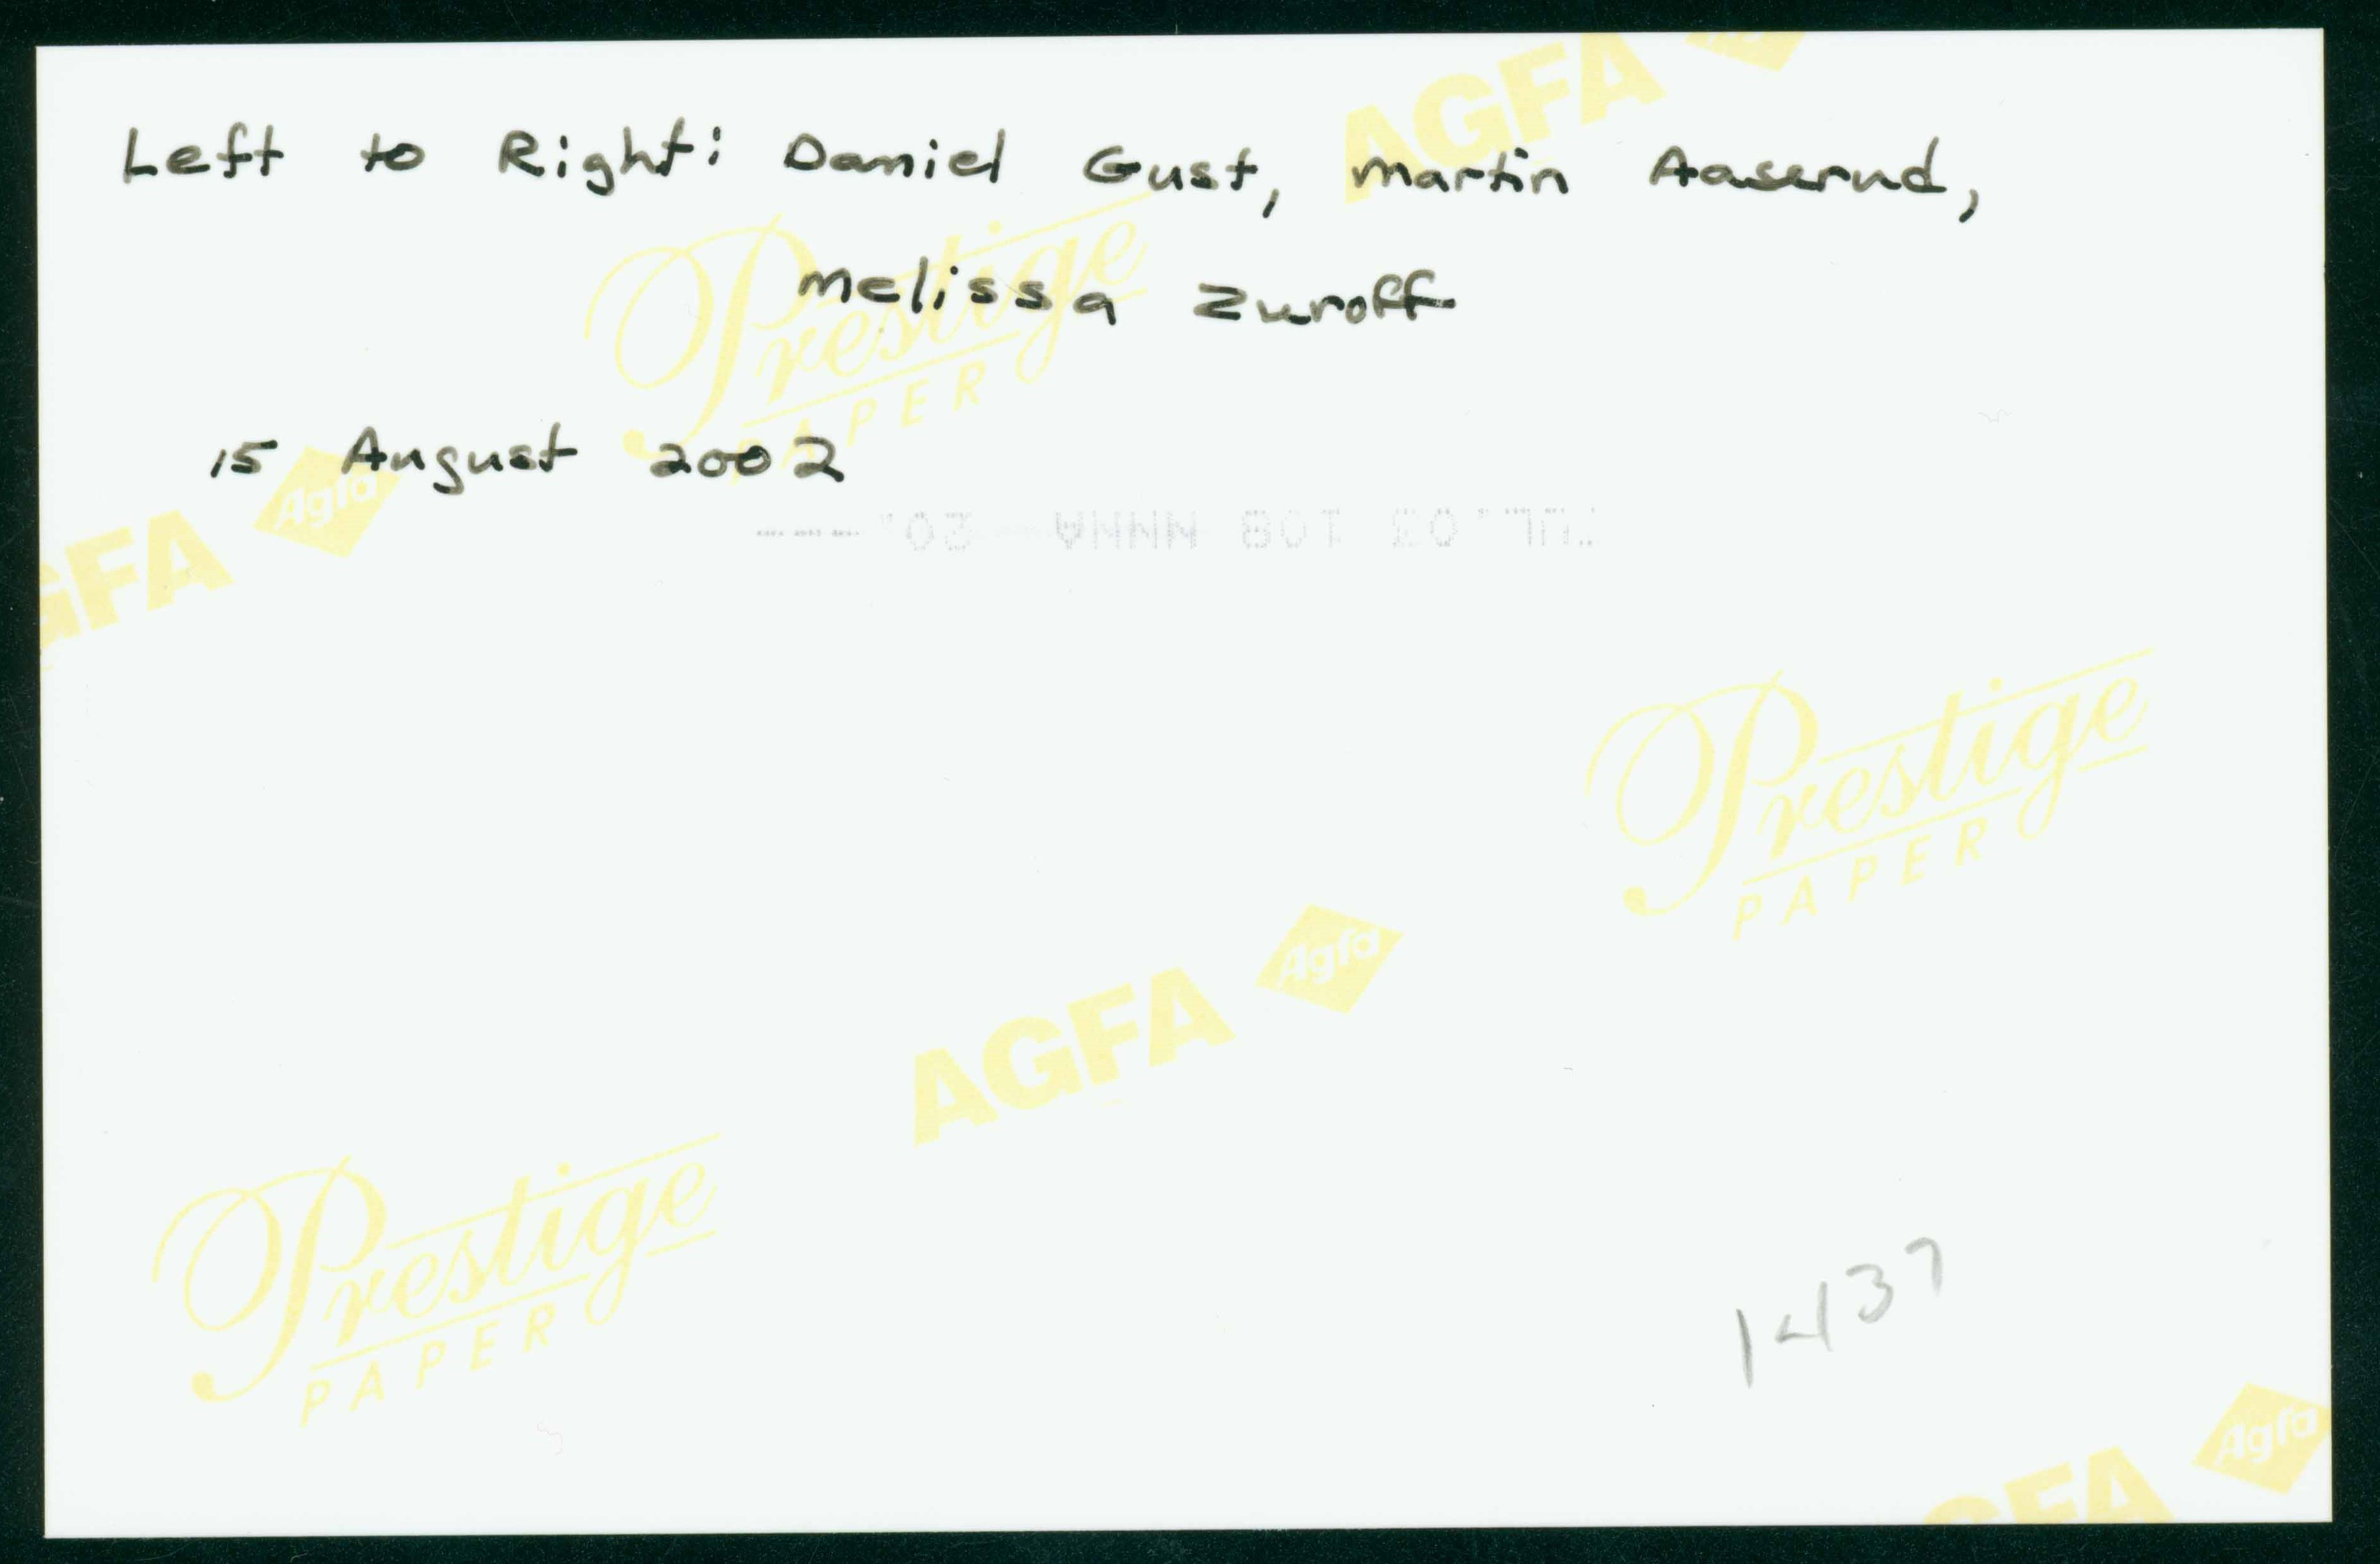 Left to Right: Daniel Gust, Martin Aaserud,
Melissa Zuroff
15 August 2002
AGFA
Prestige
PAPER
Agfa
GFA
Prestige
PAPER
Agfa
AGFA
Prestige
PAPER
1437
Agfa
GFA